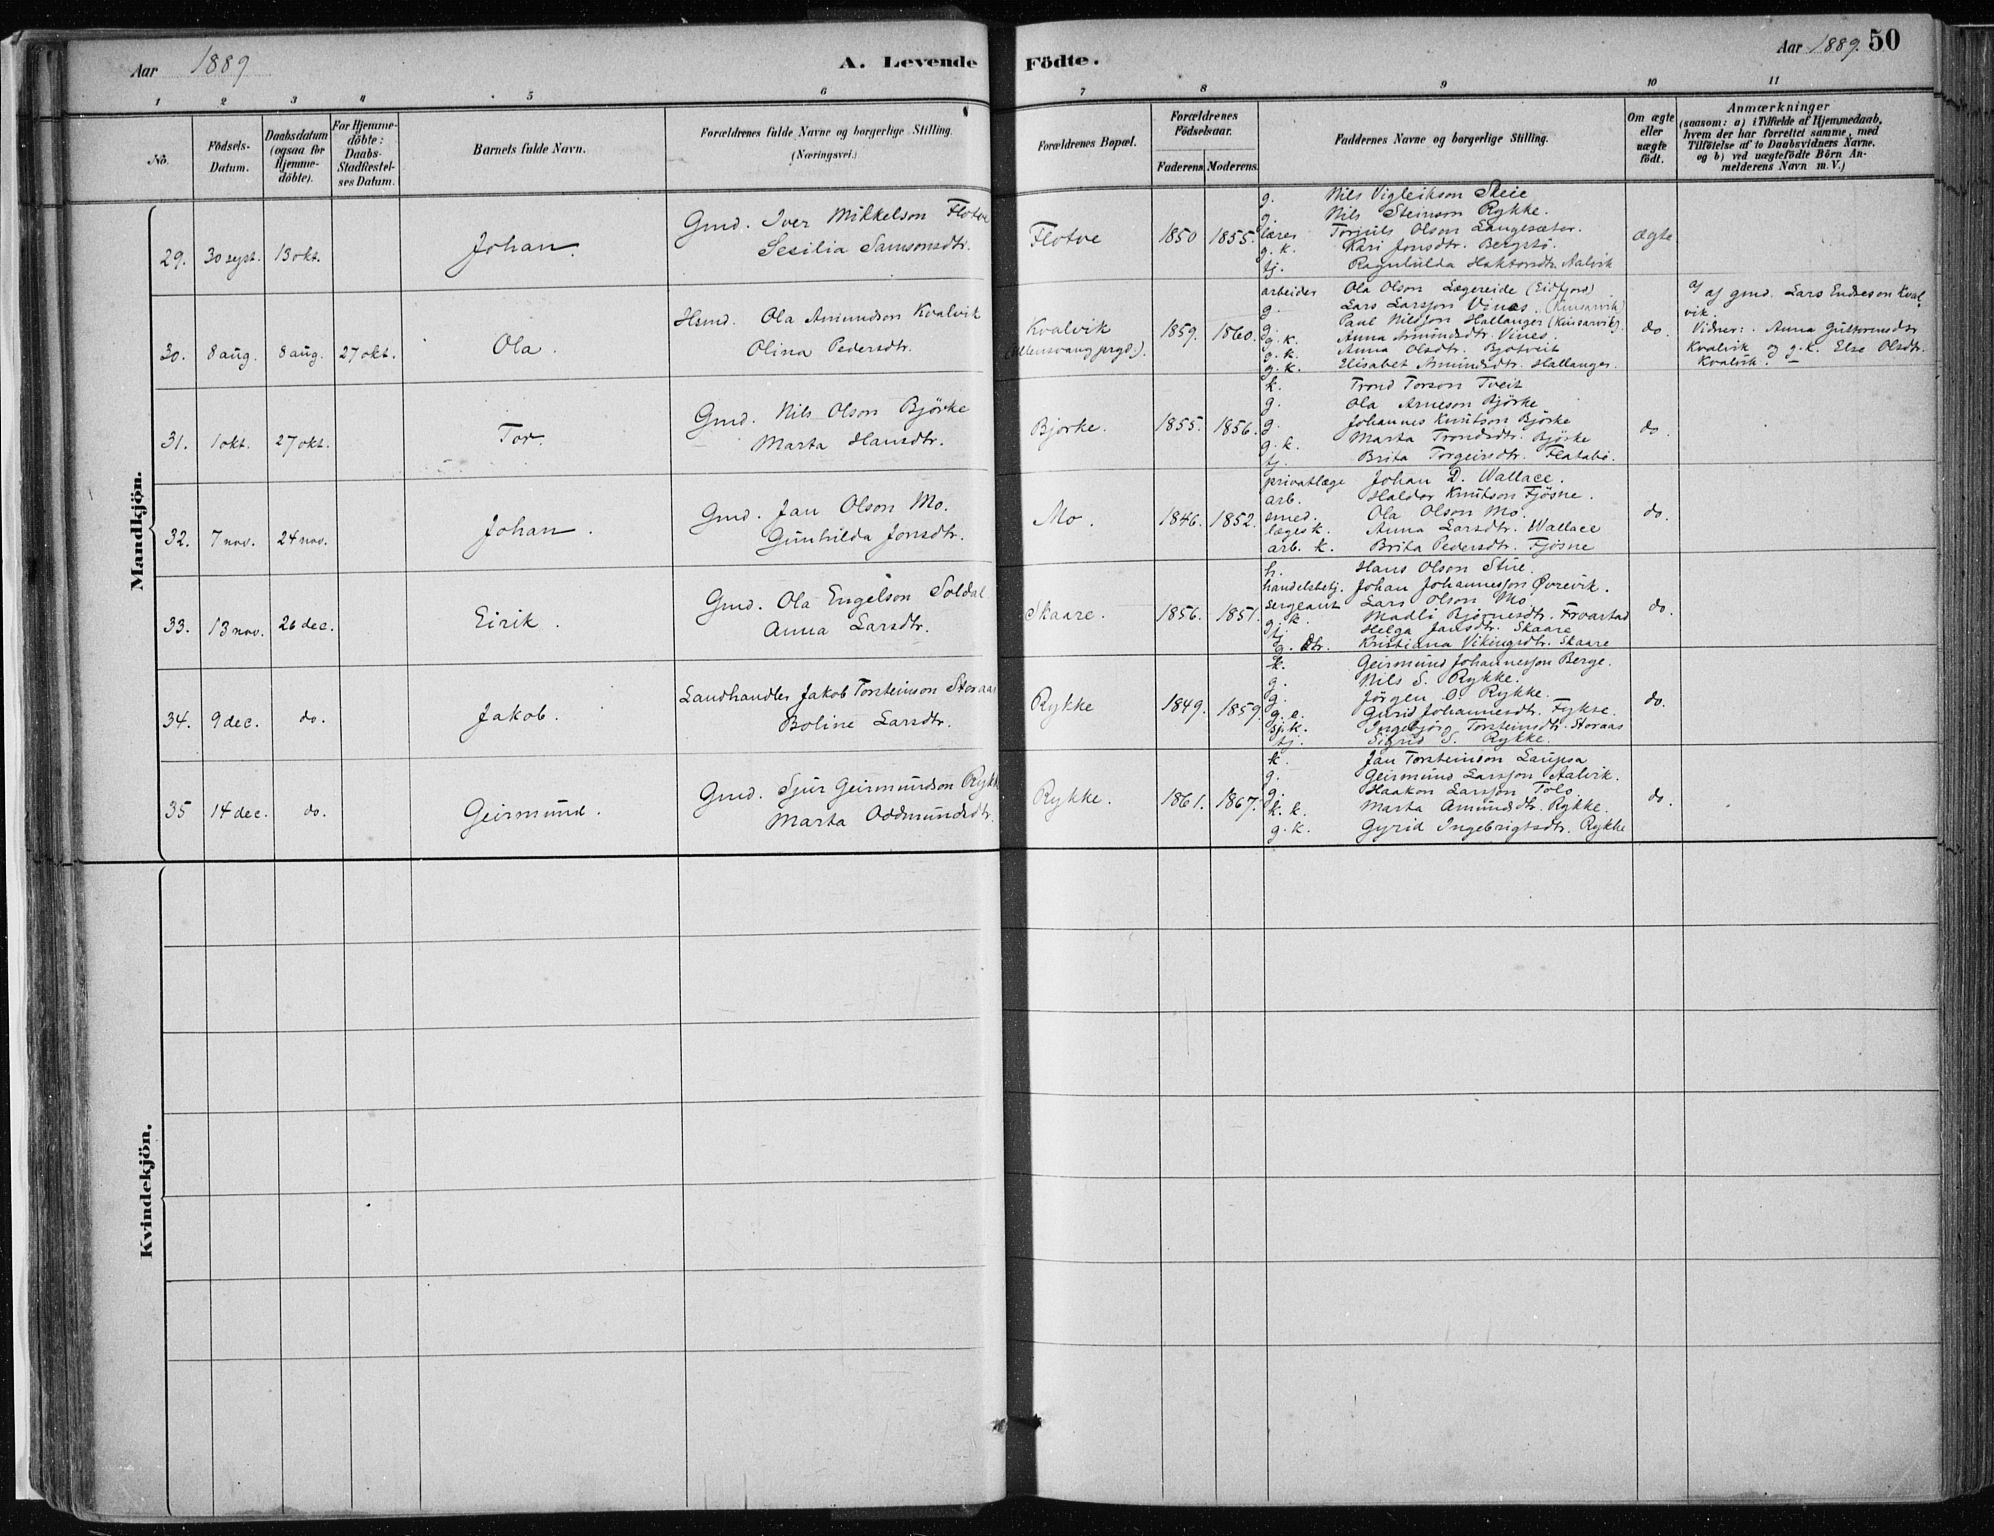 Aar 1889
A. Levende Födte.
Aar 1889. 50
1 2 3 4 5 6 7 8 9 10 11
No.
Födsels-
Datum.
Daabsdatum
(ogsaa for
Hjemme-
döbte).
For Hjemme-
döbte:
Daabs-
Stadfæstel-
ses Datum.
Barnets fulde Navn.
Forældrenes fulde Navne og borgerlige Stilling.
(Næringsvei.)
Forældrenes Bopæl.
Forældrenes
Födselsaar.
Faderens Moderens.
Faddernes Navne og borgerlige Stilling.
Om ægte
eller
uægte
födt.
Anmærkninger
(saasom: a) i Tilfælde af Hjemmedaab,
hvem der har forrettet samme, med
Tilföielse af to Daabsvidners Navne.
og b) ved uægtefödte Börn An-
melderens Navn m. V.)
Mandkjön.
29. 30 sept. 13 okt. Johan.
Gmd. Iver Mikkelson Flotve
Sesilia Samsonsdtr.
Flotve 1850 1855.
g. Nils Vigleikson Steie
g. Nils Steinson Rykke.
lærer Torjuls Olson Langesæter.
g. k. Kari Jonsdtr. Bergstö.
tj. Ragnhilda Haktorsdtr. Aalvik
ægte
30. 8 aug. 8 aug. 27 okt. Ola.
Hsmd. Ola Amundson Kvalvik
Olina Pedersdtr.
Kvalvik
(Ullensvang prgd.).
1859. 1860.
arbeider Ola Olson Lægereide (Eidfjord)
g. Lars Larsson Vines. (Kinsarvik)
g. Paul Nilsson Hallanger (Kinsarvik).
g. k. Anna Amundsdtr. Vines.
g. k. Anna Olsdtr. Bjotveit
g. k. Elisabet Amundsdtr. Hallanger.
do.
a) af gmd. Lars Endreson Kval-
vik.
Vidner: Anna Guttormsdtr
Kvalvik og g. k. Else Olsdtr.
Kvalvik.
31. 1 okt. 27 okt. Tor.
Gmd. Nils Olson Björke
Marta Hansdtr.
Bjorke. 1855. 1856.
k. Trond Torson Tveit
g. Ola Arneson Björke
g. Johannes Knutson Björke
g. k. Marta Trondsdtr. Björke
tj. Brita Torgeirsdtr. Flatabö.
do.
32. 7 nov. 24 nov. Johan.
Gmd. Jan Olson Mo.
Gunhilda Jonsdtr.
Mo. 1846. 1852.
privatlæge Johan D. Wallace.
arb. Haldor Knutson Fjösne.
smed. Ola Olson Mo.
lægesk. Anna Larsdtr. Wallace
arb. k. Brita Pedersdtr. Fjösne
do.
33. 13 nov. 26 dec. Eirik.
Gmd. Ola Engelson Soldal
Anna Larsdtr.
Skaare. 1856. 1851.
h. Hans Olson Stue.
handelsbetj. Johan Johannesson Øvrevik.
sergeant Lars Olson Mo.
g. k. Madli Bjørnesdtr. Frøastad
tj. Helga Jansdtr. Skaare
g. dtr. Kristiana Vikingsdtr. Skaare
do.
34. 9 dec. do. Jakob.
Landhandler Jakob Torsteinson Storaas
Boline Larsdtr.
Rykke 1849. 1859.
k. Geirmund Johannesson Berge.
g. Nils S. Rykke.
g. Jörgen O. Rykke.
g. e. Gurid Johannesdtr. Fykse.
sj. k. Ingebjörg Torsteinsdtr. Storaas
tj. Sigrid S. Rykke.
do.
35 14 dec. do. Geirmund.
Gmd. Sjur Geirmundson Rykke
Marta Oddmundsdtr.
Rykke. 1861. 1867.
k. Jan Torsteinson Laupsa
g. Geirmund Larsson Aalvik.
g. Haakon Larsson Tolo.
k. k. Marta Amundsdtr. Rykke.
g. k. Gyrid Ingebrigtsdtr. Rykke
do.
Kvindekjön.